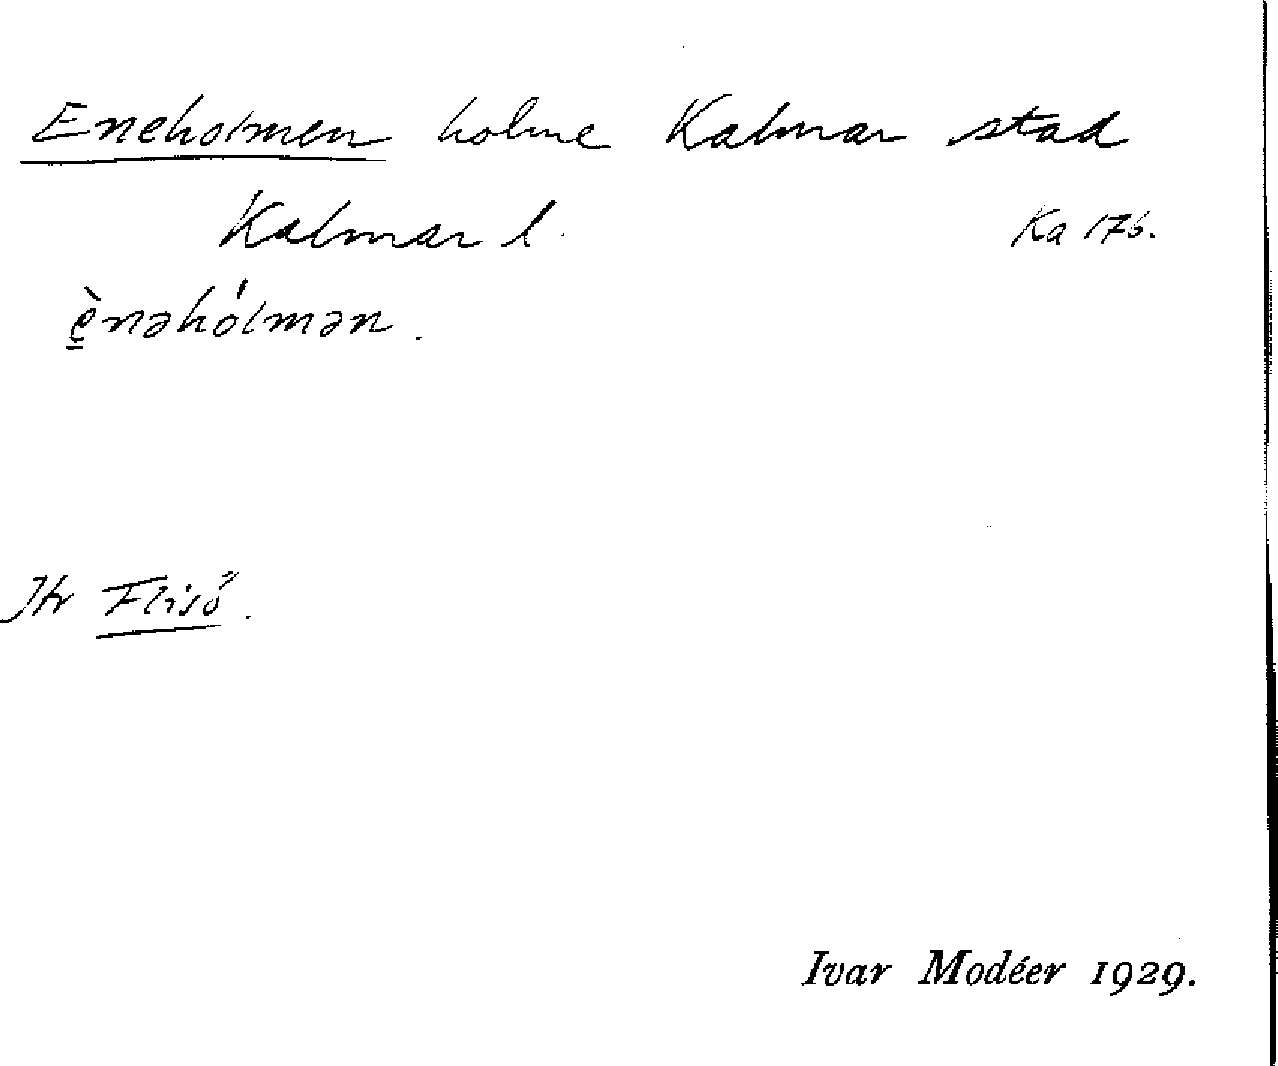 Eneholmen holme Kalmar stad
Kalmar l.
Ka 176.
è̳nəhól̍mən.
Jfr Flisö.
Ivar Modéer 1929.